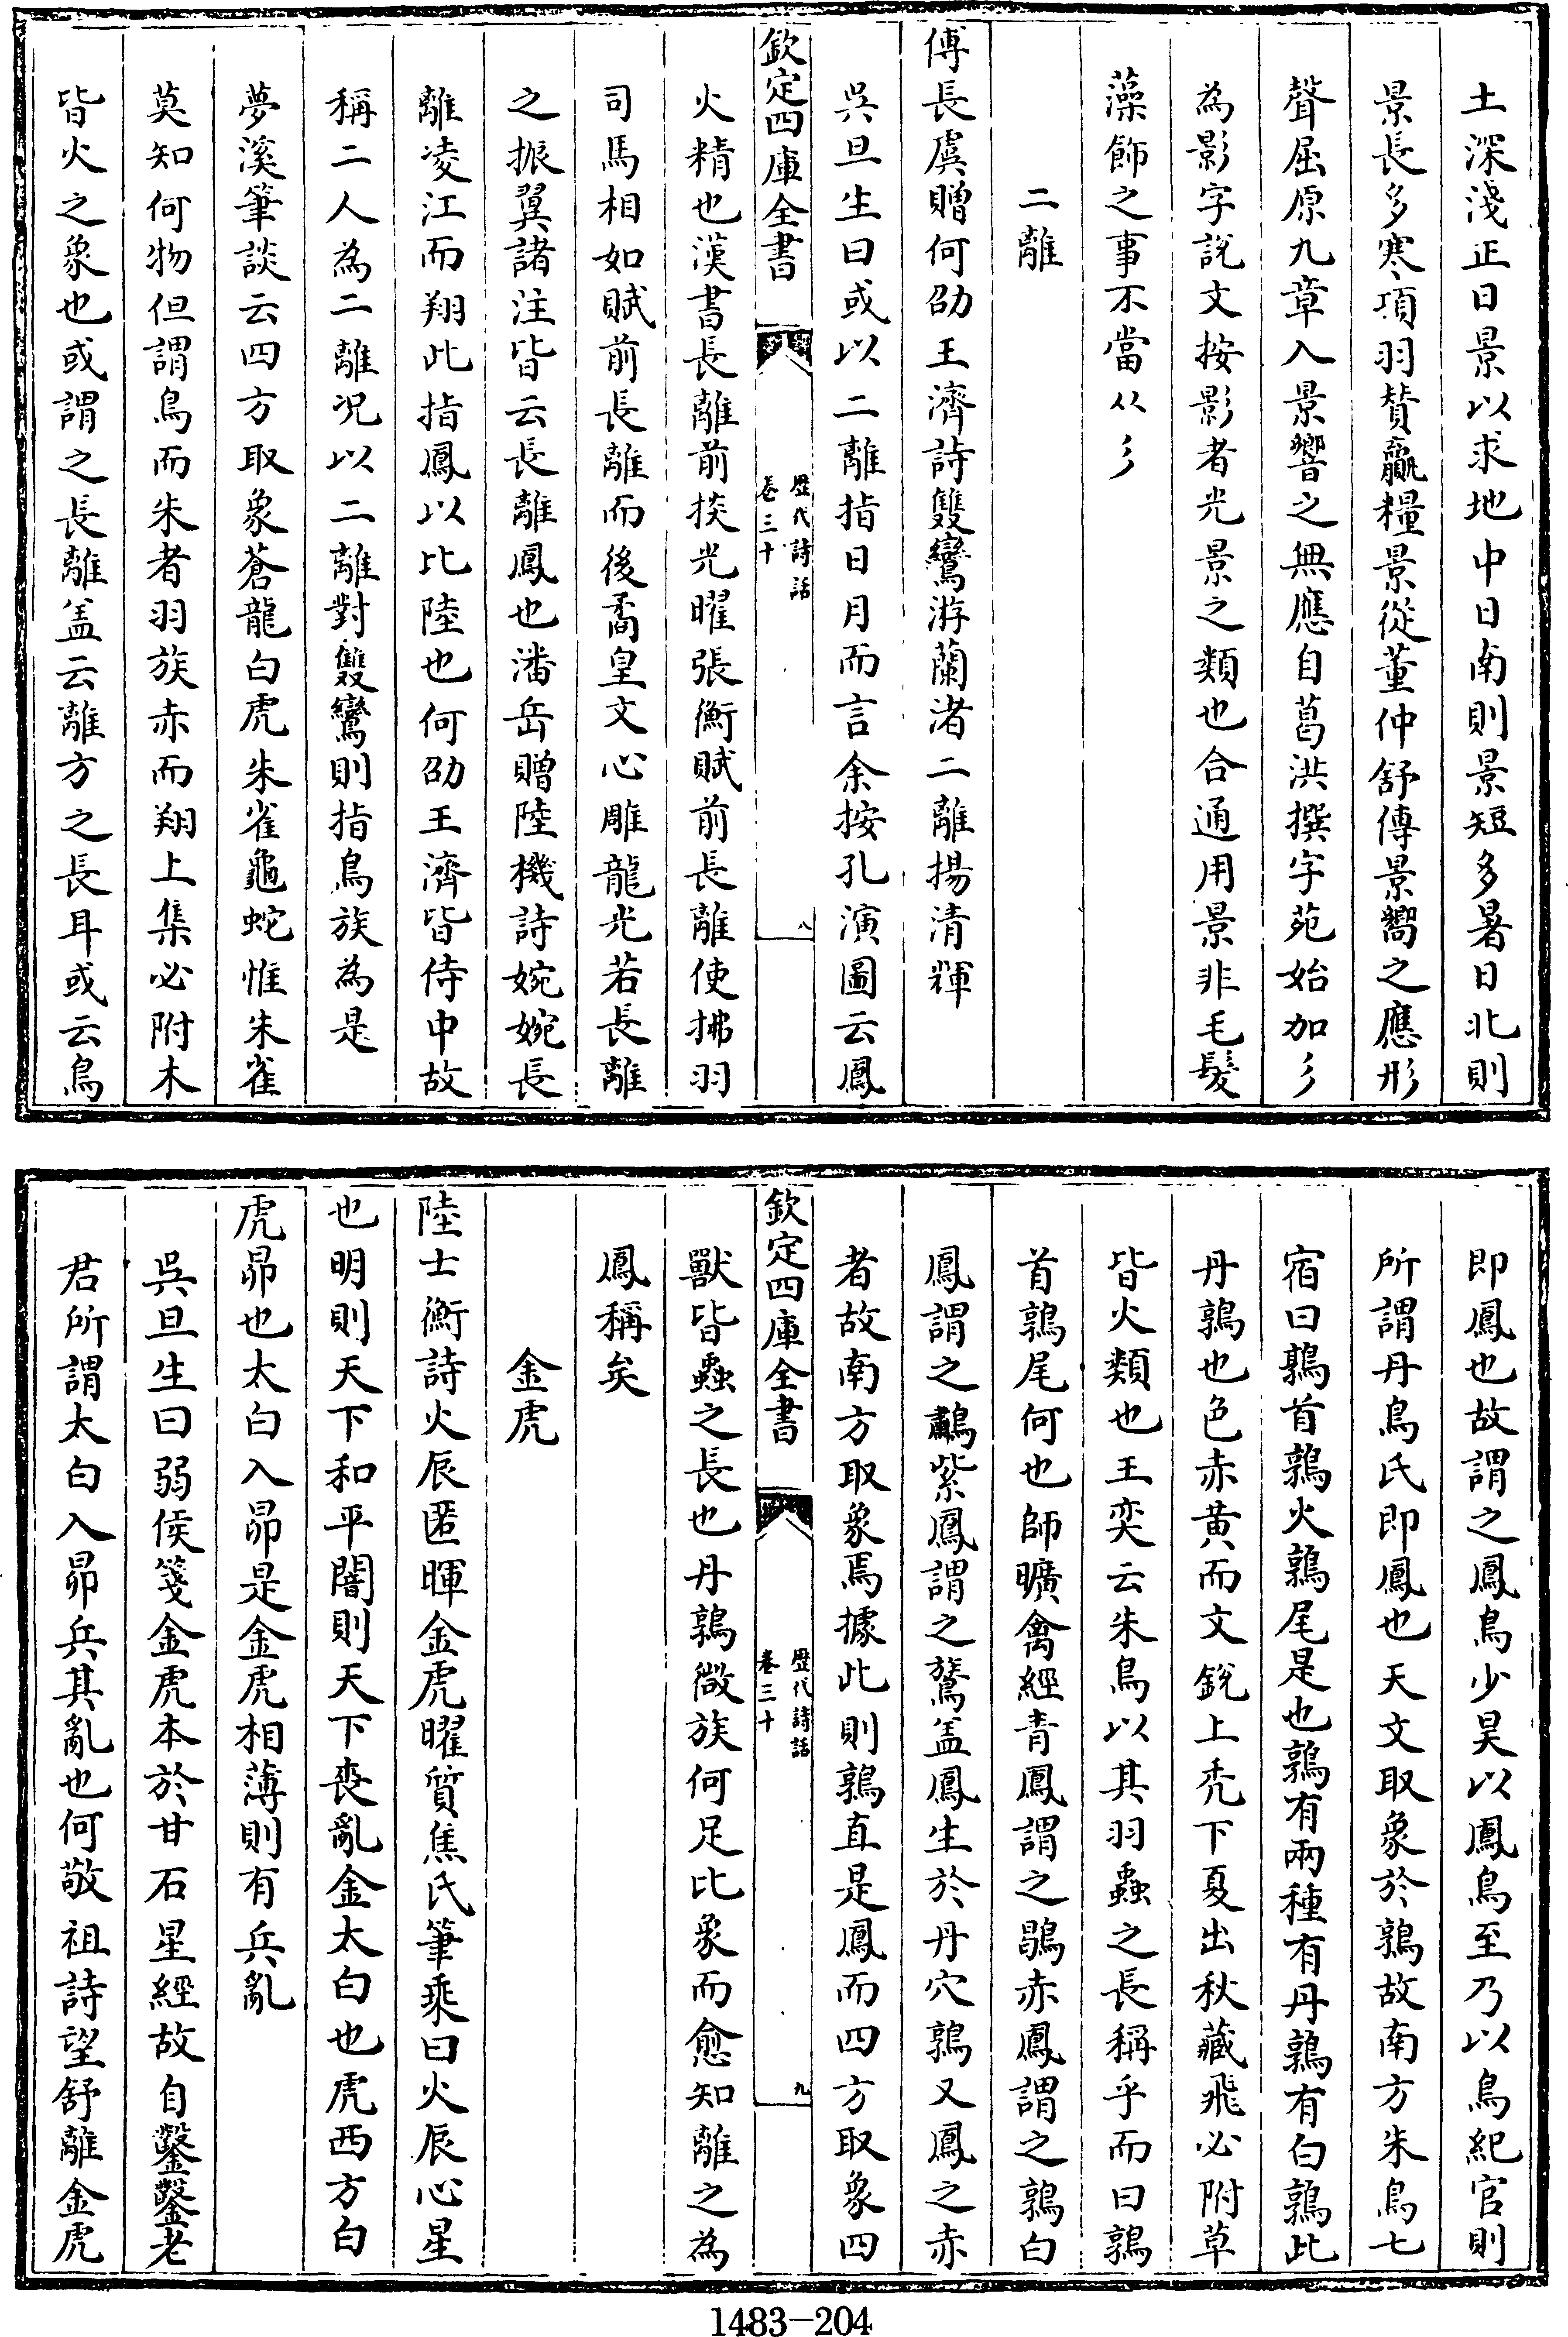 土深淺正日景以求地中日南則景短多暑日北則
景長多寒項羽賛贏糧景從董仲舒傳景嚮之應形
聲屈原九章入景響之無應自葛洪撰字苑始加彡
為影字說文按影者光景之類也合通用景非毛髮
藻飾之事不當从彡
二離
傅長虞贈何劭王濟詩雙鸞游蘭渚二離揚清輝
吳旦生曰或以二離指日月而言余按孔演圖云鳳
欽定四庫全書
歴代詩話
卷三十
八
火精也漢書長離前掞光曜張衡賦前長離使拂羽
司馬相如賦前長離而後矞皇文心雕龍光若長離
之振翼諸注皆云長離鳳也潘岳贈陸機詩婉婉長
離凌江而翔此指鳳以比陸也何劭王濟皆侍中故
稱二人為二離況以二離對雙鸞則指鳥族為是
夢溪筆談云四方取象蒼龍白虎朱雀龜蛇惟朱雀
莫知何物但謂鳥而朱者羽族赤而翔上集必附木
皆火之象也或謂之長離盖云離方之長耳或云鳥
即鳳也故謂之鳳鳥少昊以鳳鳥至乃以鳥紀官則
所謂丹鳥氏即鳳也天文取象於鶉故南方朱鳥七
宿曰鶉首鶉火鶉尾是也鶉有兩種有丹鶉有白鶉此
丹鶉也色赤黄而文銳上秃下夏出秋藏飛必附草
皆火類也王奕云朱鳥以其羽蟲之長稱乎而曰鶉
首鶉尾何也師曠禽經青鳳謂之鶡赤鳳謂之鶉白
鳳謂之鷫紫鳳謂之鷟盖鳳生於丹穴鶉又鳳之赤
者故南方取象焉據此則鶉直是鳳而四方取象四
欽定四庫全書
歴代詩話
卷三十
九
獸皆蟲之長也丹鶉微族何足比象而愈知離之為
鳳稱矣
金虎
陸士衡詩火辰匿暉金虎曜質焦氏筆乘曰火辰心星
也明則天下和平闇則天下喪亂金太白也虎西方白
虎昴也太白入昴是金虎相薄則有兵亂
吳旦生曰弱侯箋金虎本於甘石星經故自鑿鑿老
君所謂太白入昴兵其亂也何敬祖詩望舒離金虎
1483-204